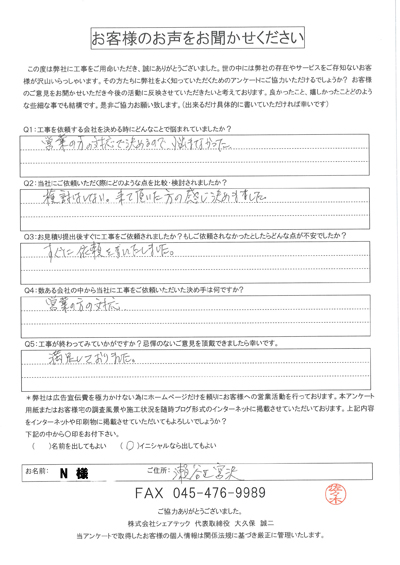 お客様のお声をお聞かせください
この度は弊社に工事をご用命いただき、誠にありがとうございました。世の中には弊社の存在やサービスをご存知ないお客
様が沢山いらっしゃいます。その方たちに弊社をよく知っていただくためのアンケートにご協力いただけるでしょうか? お客様
のご意見をお聞かせいただき今後の活動に反映させていただきたいと考えております。良かったこと、嬉しかったことどのよう
な些細な事でも結構です。是非ご協力お願い致します。（出来るだけ具体的に書いていただければ幸いです）
Q1：工事を依頼する会社を決める時にどんなことで悩まれていましたか？
営業の方の対応で決めるので、悩まなかった
Q2：当社にご依頼いただく際にどのような点を比較・検討されましたか？
検討はしない。来て頂いた方の感じで決めました。
Q3：お見積り提出後すぐに工事をご依頼されましたか？もしご依頼されなかったとしたらどんな点が不安でしたか？
すぐに依頼をいたしました。
Q4：数ある会社の中から当社に工事をご依頼いただいた決め手は何ですか？
営業の方の対応
Q5：工事が終わってみていかがですか？忌憚のないご意見を頂戴できましたら幸いです。
満足しておりました。
＊弊社は広告宣伝費を極力かけない為にホームページだけを頼りにお客様への営業活動を行っております。本アンケート
用紙またはお客様宅の調査風景や施工状況を随時ブログ形式のインターネットに掲載させていただいております。上記内容
をインターネットや印刷物に掲載させていただいてもよろしいでしょうか？
下記の中から〇印をお付下さい。
（　）名前を出してもよい　（〇）イニシャルなら出してもよい
お名前： N 様 ご住所： 瀬谷区宮沢
FAX 045-476-9989
ご協力ありがとうございました。
株式会社シェアテック 代表取締役 大久保 誠二
当アンケートで取得したお客様の個人情報は関係法規に基づき厳正に管理いたします。